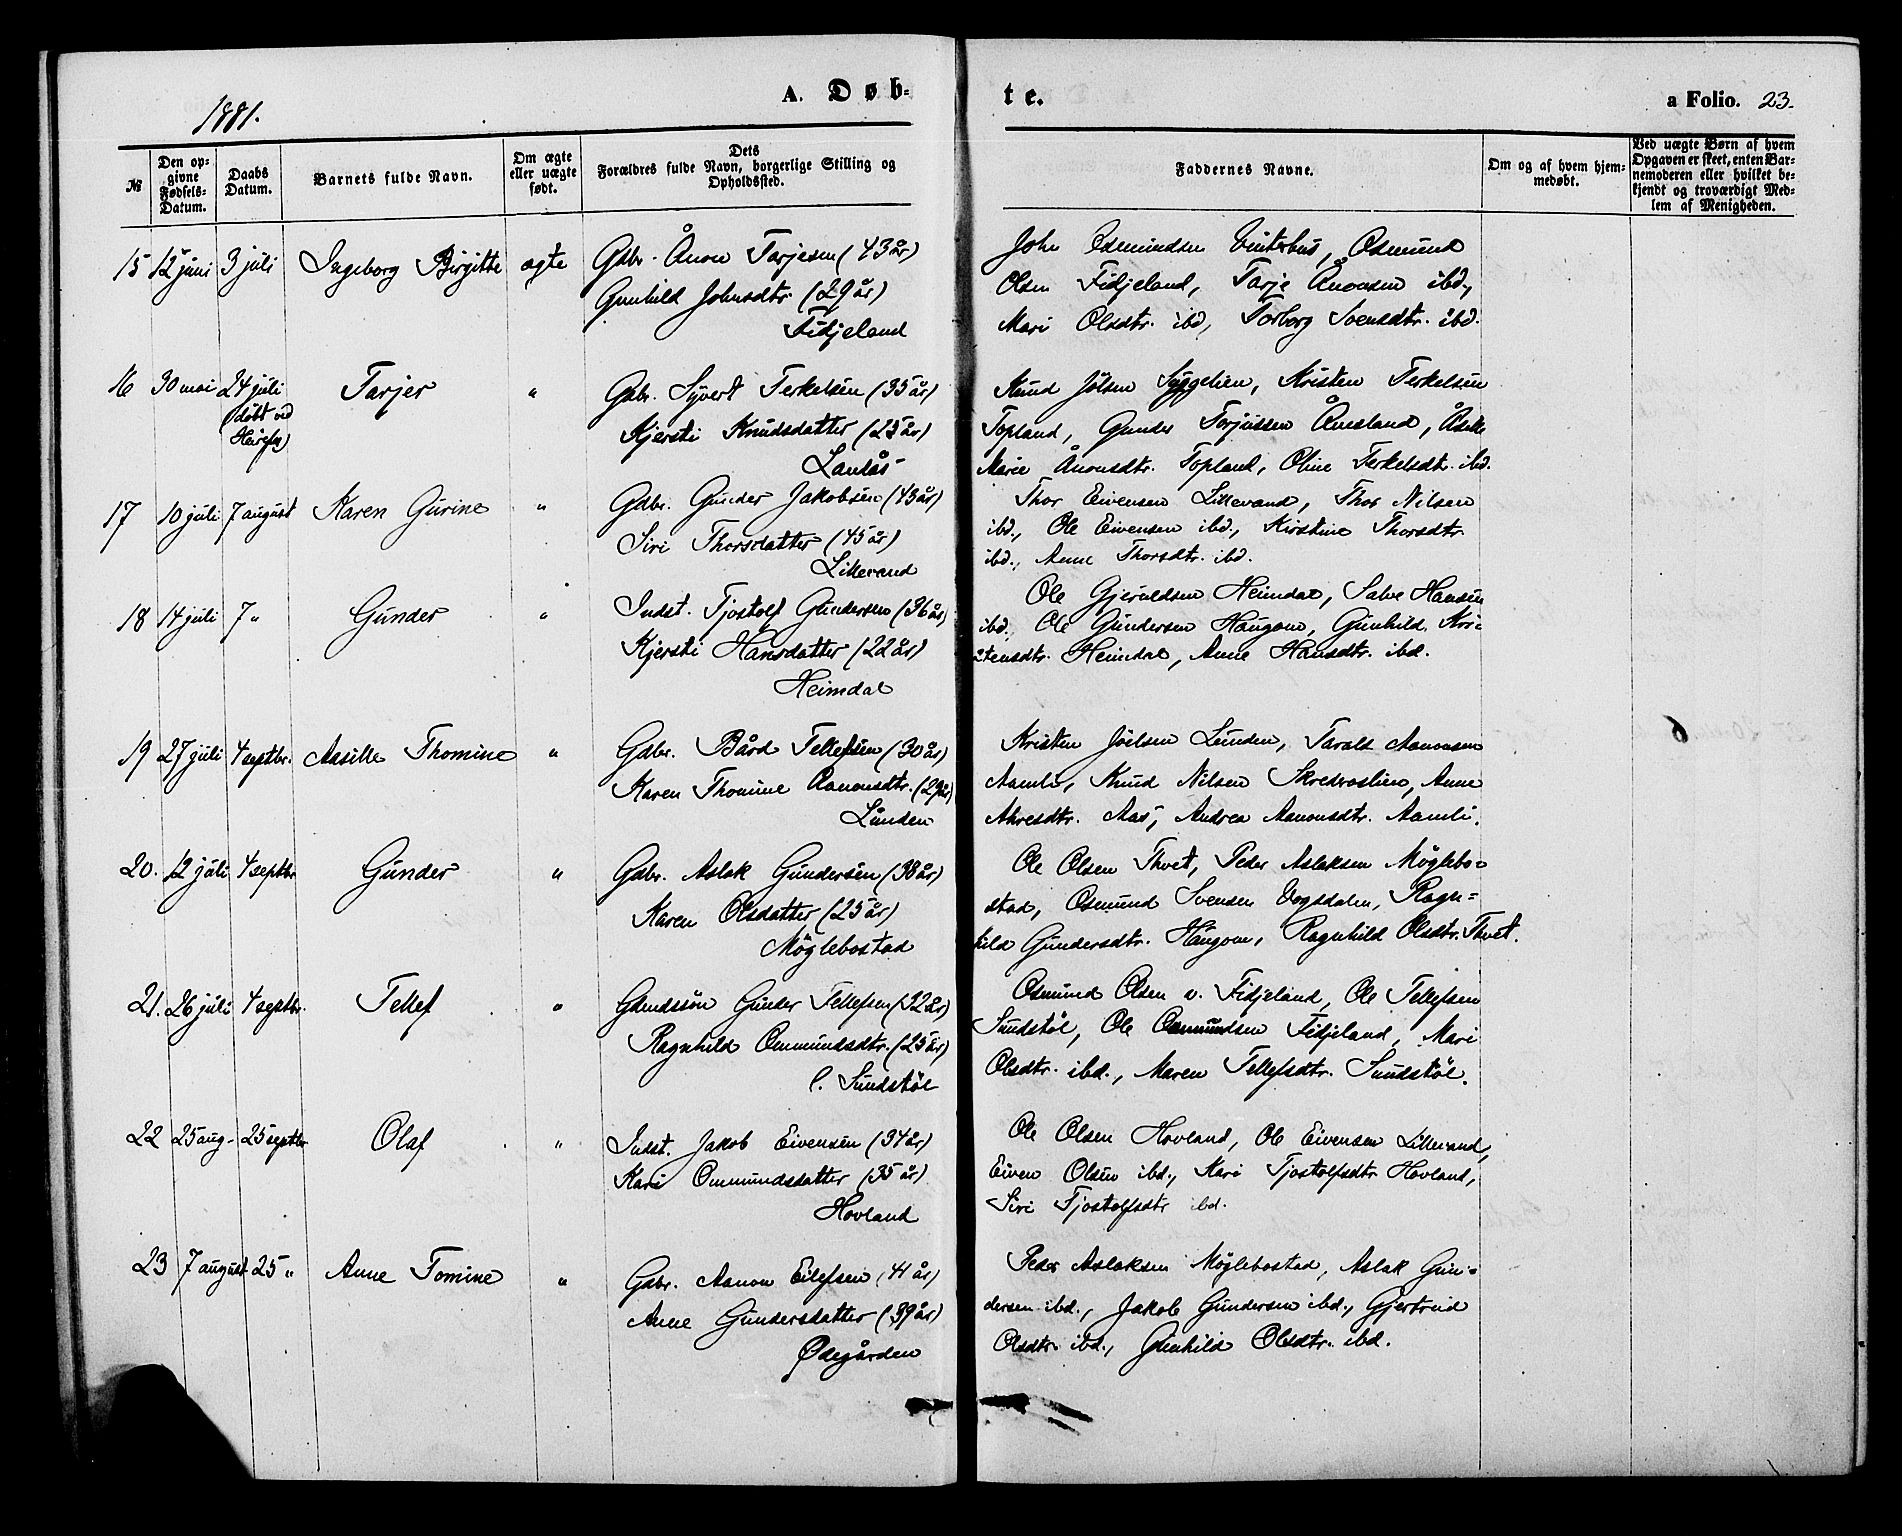 1881.
A. Døb-
te.
a Folio. 23.
№
Den op-
givne
Fødsels-
Datum.
Daabs
Datum.
Barnets fulde Navn.
Om ægte
eller uægte
født.
Dets
Forældres fulde Navn, borgerlige Stilling og
Opholdssted.
Faddernes Navne.
Om og af hvem hjem-
medøbt.
Ved uægte Børn af hvem
Opgaven er skeet, enten Bar-
nemoderen eller hvilket be-
kjendt og troværdigt Med-
lem af Menigheden.
15 12 juni 3 juli Ingeborg Birgitte ægte
Gdbr. Ånon Tarjesen (43 år)
Gunhild Johnsdtr. (29 år)
Fidjeland
John Osmundsen Vinterhus, Osmund
Olsen Fidjeland, Tarje Ånonsen ibd.,
Mari Olsdtr. ibd, Torborg Svensdtr. ibd.
16 30 mai 24 juli Tarjer "
(døbt ved
Gdbr. Syvert Terkelsen (35 år)
Kjersti Knudsdatter (25 år)
Lauås
Knud Jölsen Syggelien, Kristen Terkelsen
Topland, Gunder Torjussen Åmsland, Åsille
Marie Ånonsdtr. Topland, Oline Terkelsdtr. ibd.
17 10 juli 7 august Karen Gurine "
Gdbr. Gunder Jakobsen (43 år)
Siri Thorsdatter (45 år)
Lillevand
Thor Eivensen Lillevand, Thor Nilsen
ibd., Ole Eivensen ibd., Kirstine Thorsdtr.
ibd., Anne Thorsdtr. ibd.
18 14 juli 7 " Gunder "
Indst. Tjostolf Gundersen (36 år)
Kjersti Hansdatter (22 år)
Heimdal
Ole Gjeruldsen Heimdal, Salve Hansen
ibd. Ole Gundersen Haugom, Gunhild Kri-
stensdtr. Heimdal, Anne Hansdtr. ibd.
19 27 juli 4 septbr. Aasille Thomine "
Gdbr. Bård Tellefsen (30 år)
Karen Thomine Aanonsdtr. (29 år)
Lunden
Kristen Jöelsen Lunden, Tarald Aanonsen
Aamli, Knud Nilsen Skredvoslien, Anne
Akresdtr. Aas, Andrea Aanonsdtr. Aamli.
6
20. 12 juli 4 septbr Gunder "
Gdbr. Aslak Gundersen (38 år)
Karen Olsdatter (25 år)
Möglebostad
Ole Olsen Thvet, Peder Aslaksen Möglebo-
stad, Osmund Svensen Vogsdalen, Ragn-
hild Gundersdtr. Haugom, Ragnhild Olsdtr. Thvet.
21. 26 juli 4 septbr. Tellef "
Gdmdssön Gunder Tellefsen (32 år)
Ragnhild Ommundsdtr. (25 år)
l. Sundstöl
Osmund Olsen v. Fidjeland, Ole Tellefsen
Sundstöl, Ole Osmundsen Fidjeland, Mari
Olsdtr. ibd., Maren Tellefsdtr. Sundstöl.
22 25 aug- 25 septbr Olaf "
Indst. Jakob Eivensen (34 år)
Kari Ommundsdatter (35 år)
Hovland
Ole Olsen Hovland, Ole Eivensen Lillevand,
Eiven Olsen ibd., Kari Tjostolfsdtr Hovland,
Siri Tjostolfsdtr ibd.
23 7 august 25 " Anne Tomine "
Gdbr. Aanon Eilefsen (41 år)
Anne Gundersdatter (39 år)
Ødegården
Peder Aslaksen Möglebostad, Aslak Gun-
dersen ibd., Jakob Gundersen ibd., Gjertrud
Olsdtr. ibd., Gunhild Olsdtr. ibd.